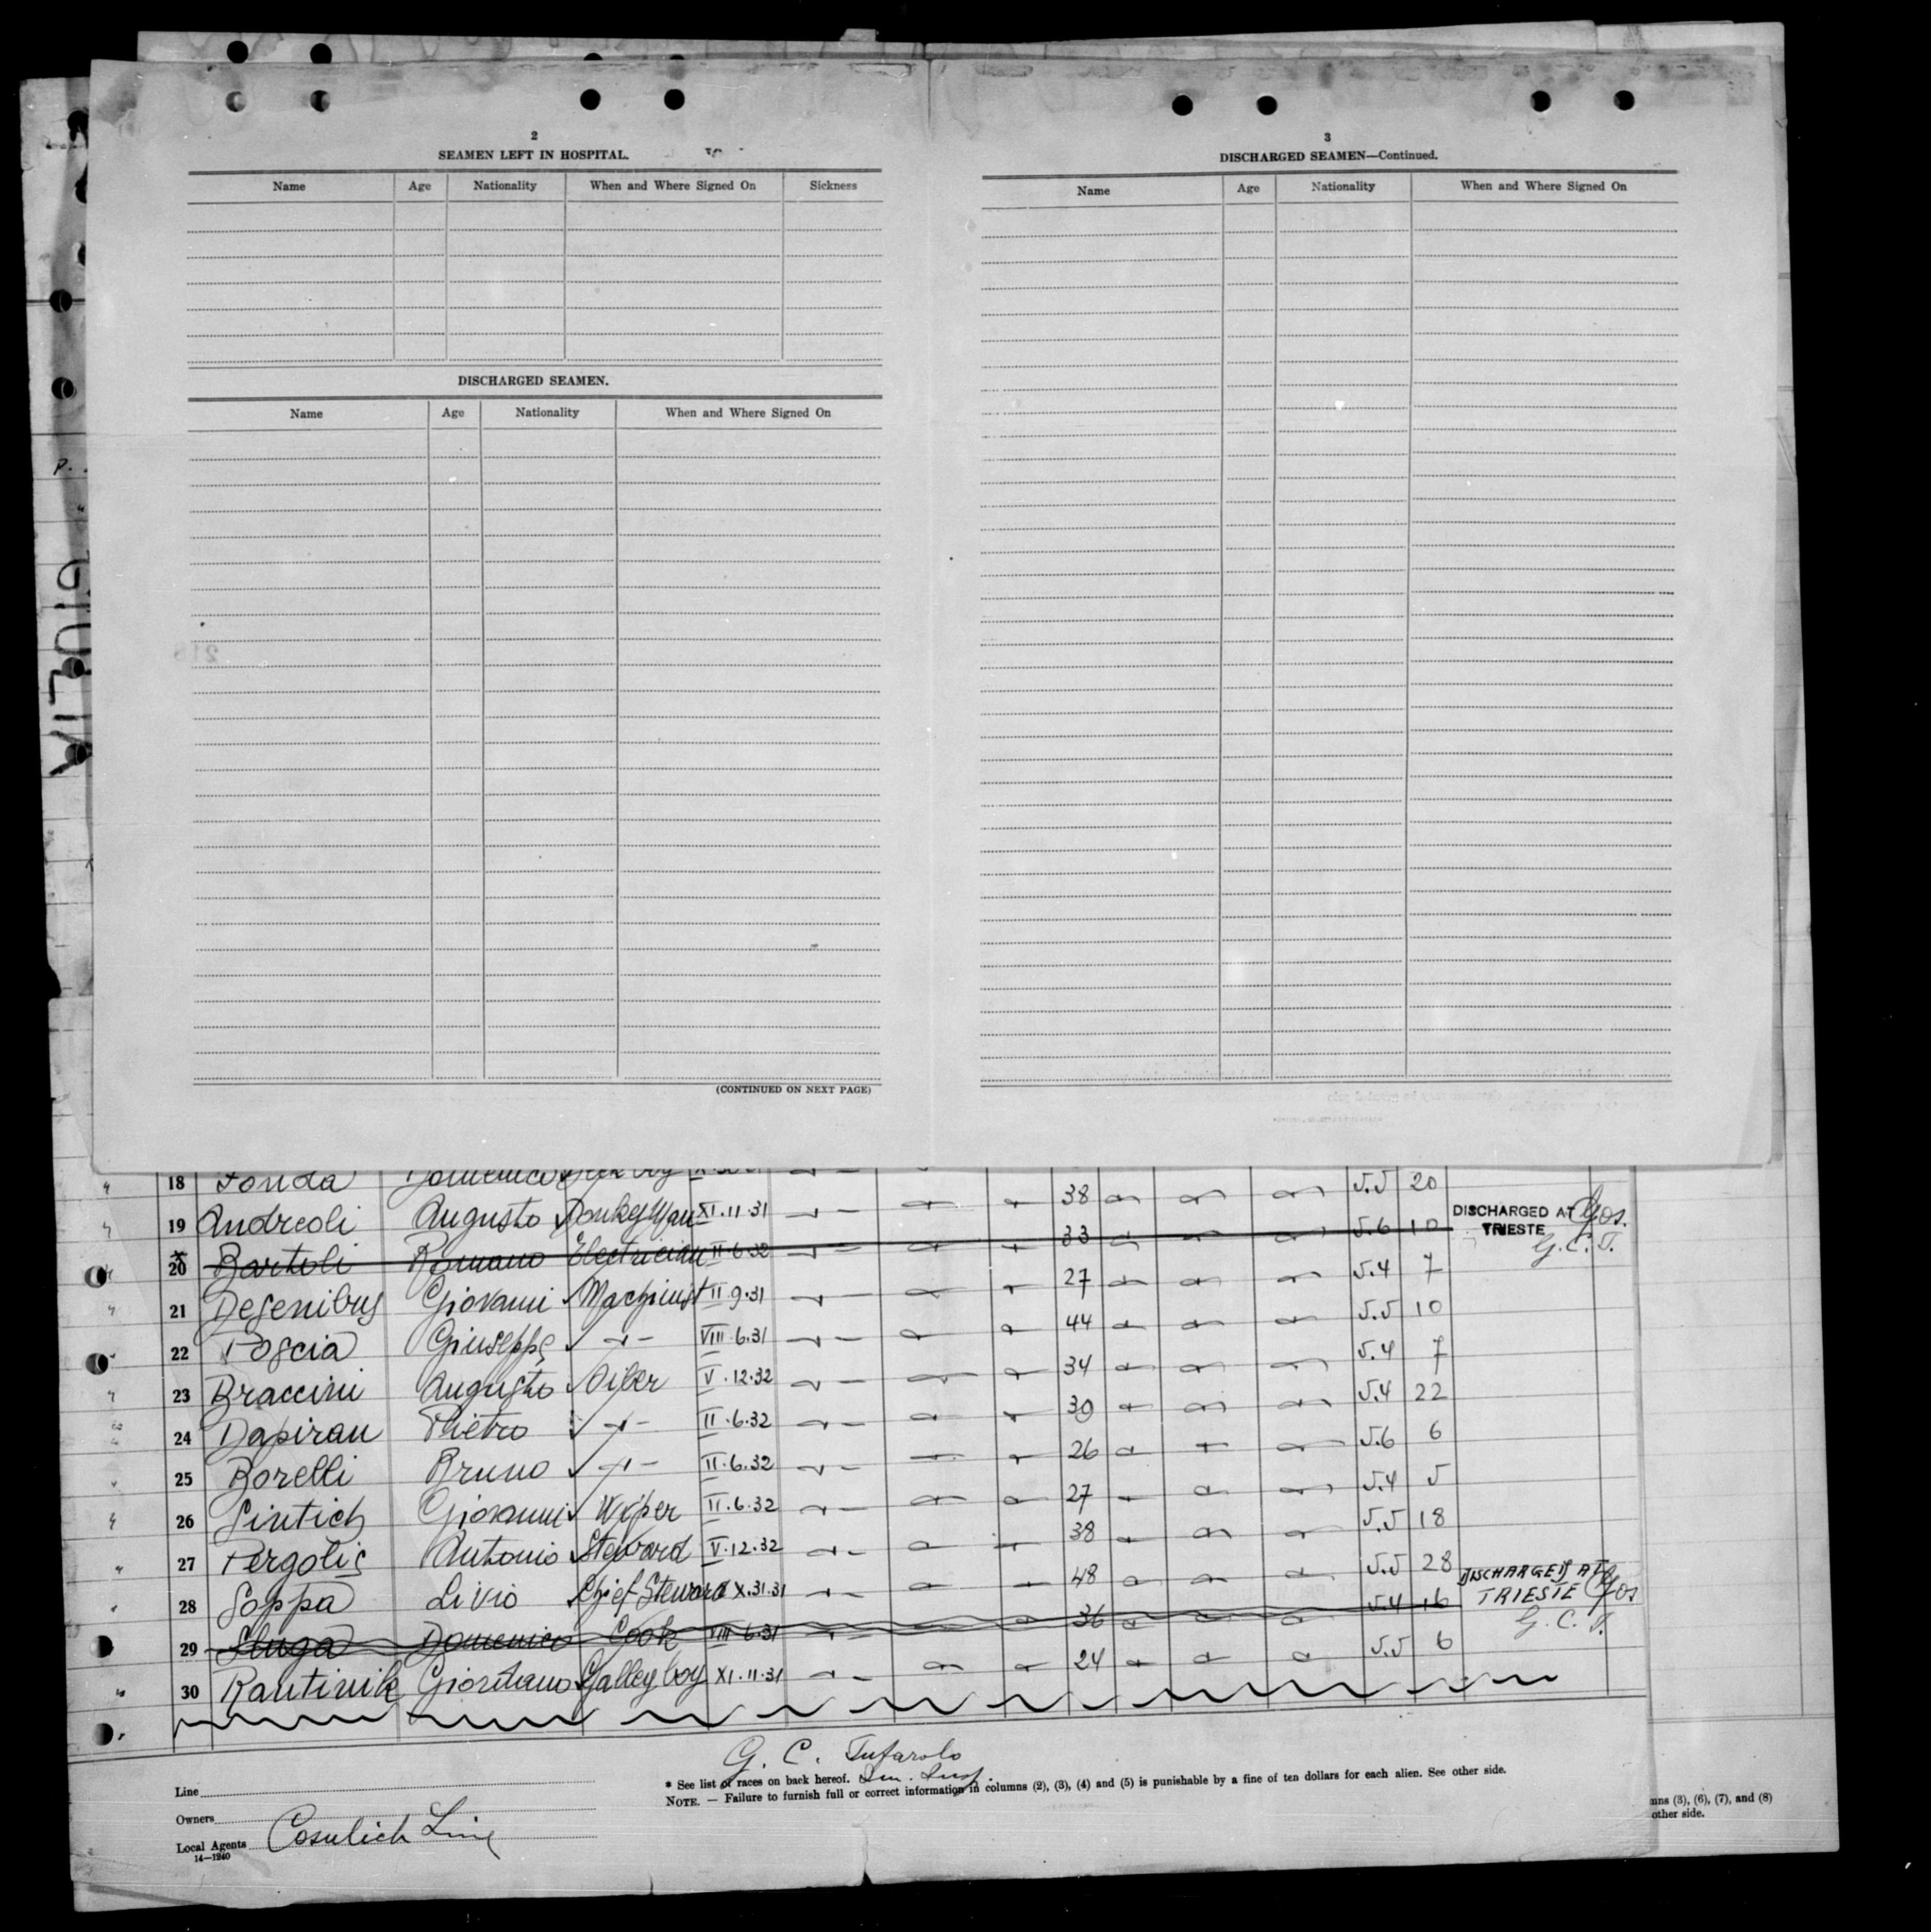 2
SEAMEN LEFT IN HOSPITAL.
Name Age Nationality When and Where Signed On Sickness
DISCHARGED SEAMEN.
Name Age Nationality When and Where Signed On
(CONTINUED ON NEXT PAGE)
3
DISCHARGED SEAMEN—Continued.
Name Age Nationality When and Where Signed On
18 Fonda Domenico 38 5.5 20
19 Andreoli Augusto Donkeyman XI.11.31 33 5.6 10
DISCHARGED AT
TRIESTE
G.C.T.
20 Bartoli Romano Electrician II.6.32 27 5.4 7
21 Giovanni Machinist II.9.31 44 5.5 10
22 Giuseppe VIII.6.31 34 5.4 7
23 Braccini Augusto Oiler V.12.32 39 5.4 22
24 Dapiran Pietro II.6.32 26 5.6 6
25 Borelli Bruno II.6.32 27 5.4 5
26 Sintich Giovanni Wiper II.6.32 38 5.5 18
27 Pergolis Antonio Steward V.12.32 48 5.5 28
DISCHARGED AT
TRIESTE
G.C.T.
28 Soppa Livio Chief Steward X.31.31 36 5.4 16
29 Sluga Domenico Cook VIII.6.31 24 5.5 6
30 Rautinik Giordano Galley boy XI.11.31
G. C. Tufarolo
Imm. Insp.
* See list of races on back hereof.
NOTE. — Failure to furnish full or correct information in columns (2), (3), (4) and (5) is punishable by a fine of ten dollars for each alien. See other side.
Line
Owners
Local Agents Cosulich Line
14—1240
mns (3), (6), (7), and (8)
other side.